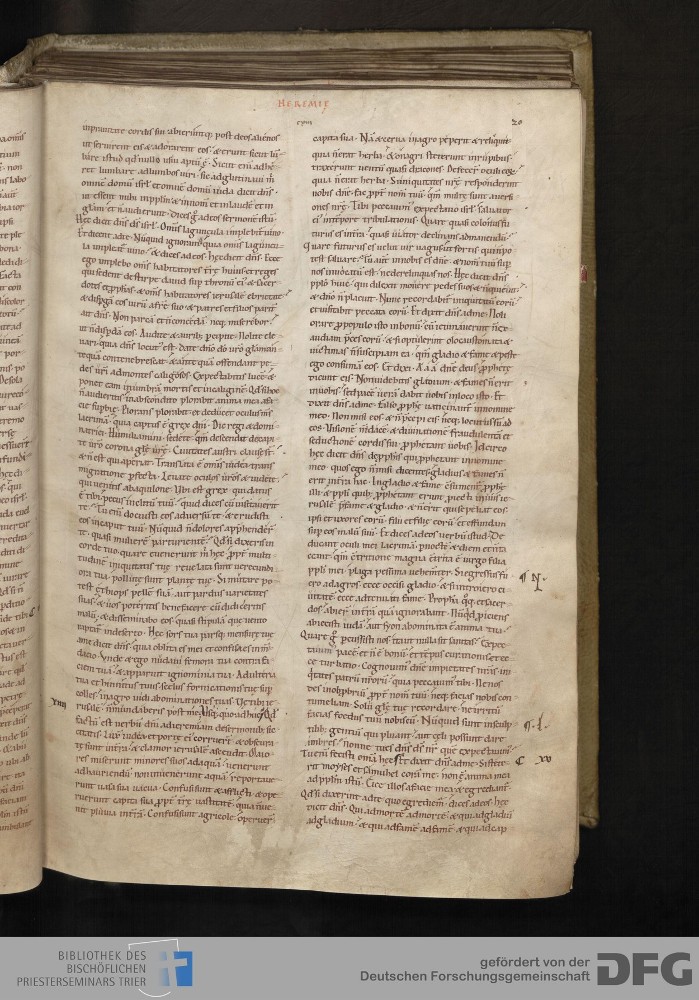 HEREMIE
in pravitate cordis sui abieruntq; post deos alienos
ut servirent eis & adorarent eos · & erunt sicut lū
bare istud qd nullo usui aptū ē · Sicut enī adhe
ret lumbare ad lumbos viri · sic adglutinavi m
omnē domū isrl et omnē domū iuda dicit dns ·
ut essent mihi in pplm & in nom et in laudē et in
glam et n audierunt · Dices g ad eos sermonē istū ·
Hec dicit dns ds isrl · Omis laguncula implebit vino ·
Et dicent ad te · Nunquid ignoram quia omis laguncu
la implebit vino · & dices ad eos hec dicit dns · Ecce
ego implebo omis habitatores terre huius et reges
qui sedent de stirpe david sup thronū ei & sacer
dotes & pphas & omis habitatores ierusale ebrietate
& dispgā eos virū a fre suo & patres et filios parit
ait dns · Non parcā et n concedā neq; miserebor
ut n dispdā eos · Audite & aurib pcipite · Nolite ele
vari quia dns locut est · Date dno do vro glam an
tequā contenebrescat · & ante quā offendant pe
des vri ad montes caligosos · Expectabitis lucē &
ponet eam in umbrā mortis et in caliginē · Qd si hoc
n audieritis in abscondito plorabit anima mea a fa
cie supbie · Plorans plorabit · et deducet oculus ms
lacrimā · quia captus ē grex dni · Dic regi & domi
natrici · Humiliamini · sedete · qm descendit de capi
te vro corona gle vre · Civitates austri clause st
& n est qui aperiat · Translata ē omis iudea trans
migratione pfecta · Levate oculos vros & videte
qui venitis ab aquilone · Ubi est grex qui datus
ē tibi pecus inclitū tuū · quid dices cū visitaverit
te · Tu enī docuisti eos adversū te & erudisti
eos in caput tuū · Nunquid n dolores apphender
te · quasi mulierē parturientē · Qd si dixeris in
corde tuo quare evenerunt m hec · ppt multi
tudinē iniquitatis tue revelata sunt verecundi
ora tua · pollute sunt plante tue · Si mutare po
test ethiops pellē suā · aut pardus varietates
suas · & vos poteritis benefacere cū didiceritis
malū · & disseminabo eos quasi stipulā que vento
raptat in deserto · Hec sors tua parsq; mensure tue
a me dicit dns · quia oblita es mei et confisa es in m
dacio · Unde & ego nudavi femora tua contra fa
ciem tuā · & apparuit ignominia tua · Adulteria
tua et hinnitus tuus scelus fornicationis tue sup
colles in agro vidi abominationes tuas · Ve tibi ie
rusale n mundaberis post me · Usq; quo adhuc · Qd
XIIII
factū est verbū dni ad ieremiam de sermonib sic
citatis · Luxit iudea et porte ei corruert & obscura
te sunt in tra · & clamor ierusale ascendit · Maio
res miserunt minores suos ad aquā · venerunt
ad hauriendū · non invenerunt aquā · reportave
runt vasa sua vacua · Confusi sunt & afflicti · & ope
ruerunt capita sua · ppt tre vastitatē · quia n ve
nit pluvia in tra · Confusi sunt agricole · operuer
CXVIII
20
capita sua · Nā & cerva in agro peperit & reliquit ·
quia n erat herba · & onagri steterunt in rupibus ·
traxerunt ventū quasi dracones · Defecer oculi eoꝝ ·
quia n erat herba · Si iniquitates nre responderint
nobis dne · fac ppt nom tuū · qm multe sunt aversi
ones nre · Tibi peccavim expectatio isrl · salvator
ei in tempore tribulationis · Quare quasi colonus fu
turus es in tra · quasi viator declinans ad manendū ·
Quare futurus es velut vir vagus ut fortis qui n po
test salvare · Tu aut in nobis es dne · & nom tuū sup
nos invocatū est · ne derelinquas nos · Hec dicit dns
pplo huic · qui dilexit movere pedes suos & n quievit ·
& dno n placuit · Nunc recordabit iniquitatū eorū
et visitabit peccata eorū · Et dixit dns ad me · Noli
orare p populo isto in bonū · cū ieiunaverint n ex
audiam pces eorū · & si optulerint olocaustomata &
victimas n suscipiam ea · qm gladio & fame & peste
ego consumā eos · Et dixi · A a a dne deus · pphete
dicunt eis · Non videbitis gladium · & fames n erit
in vobis · set pacē verā dabit vobis in loco isto · Et
dixit dns ad me · Falso pphe vaticinant in nomine
meo · Non misi eos · & n pcepi eis neq; locutus sū ad
eos · Visionē mdacē · & divinationē fraudulentā et
seductionē cordis sui pphetant vobis · Idcirco
hec dicit dns de pphis qui pphetant in nomine
meo · quos ego n misi · dicentes gladius & fames n
erit in tra hac · In gladio & fame csument pphe
illi · & ppli quib pphetant erunt piecti in viis ie
rusale p fame & gladio · & n erit qui sepeliat eos ·
ipsi et uxores eorū · filii et filie eorū · et effundam
sup eos malū suū · Et dices ad eos verbū istud · De
ducant oculi mei lacrimā p nocte & diem et n ta
ceant · qm ctritione magna ctrita ē virgo filia
ppli mei · plaga pessima vehemter · Si egressus fu
ero ad agros · ecce occisi gladio · & si introiero ci
¶ N ·
vitatē · ecce adtenuati fame · Propha qq; et sacer
dos abier in trā quā ignorabant · Nūqd piciens
abiecisti iudā · aut syon abominata ē anima tua ·
Quare g pcussisti nos · ita ut nulla sit sanitas · Expec
tavim pacē et n ē bonū · et tēpus curationis et ec
ce turbatio · Cognovim dne impietates nras · in
qitates patrū nrorū · quia peccavim tibi · Ne nos
des in obprobriū ppt nom tuū · neq; facias nobis con
tumeliam · Soliū gle tue recordare · ne irritū
facias foedus tuū nobiscū · Nunquid sunt in sculp
¶ · I ·
tilib gentiū qui pluant · aut celi possunt dare
imbres · nonne tu es dns ds nr que expectavim ·
Tu enī fecisti omia hec · Et dixit dns ad me · Si stete
C XV
rit moyses et samuhel corā me · non ē anima mea
ad pplm istū · Eice illos a facie mea & egrediant ·
Qd si dixerint ad te · quo egrediem · dices ad eos · hec
dicit dns · Qui ad morte ad morte · & qui ad gladiū
ad gladium · & qui ad famē ad famē · & qui ad cap
BIBLIOTHEK DES
BISCHÖFLICHEN
PRIESTERSEMINARS TRIER
gefördert von der
Deutschen Forschungsgemeinschaft
DFG